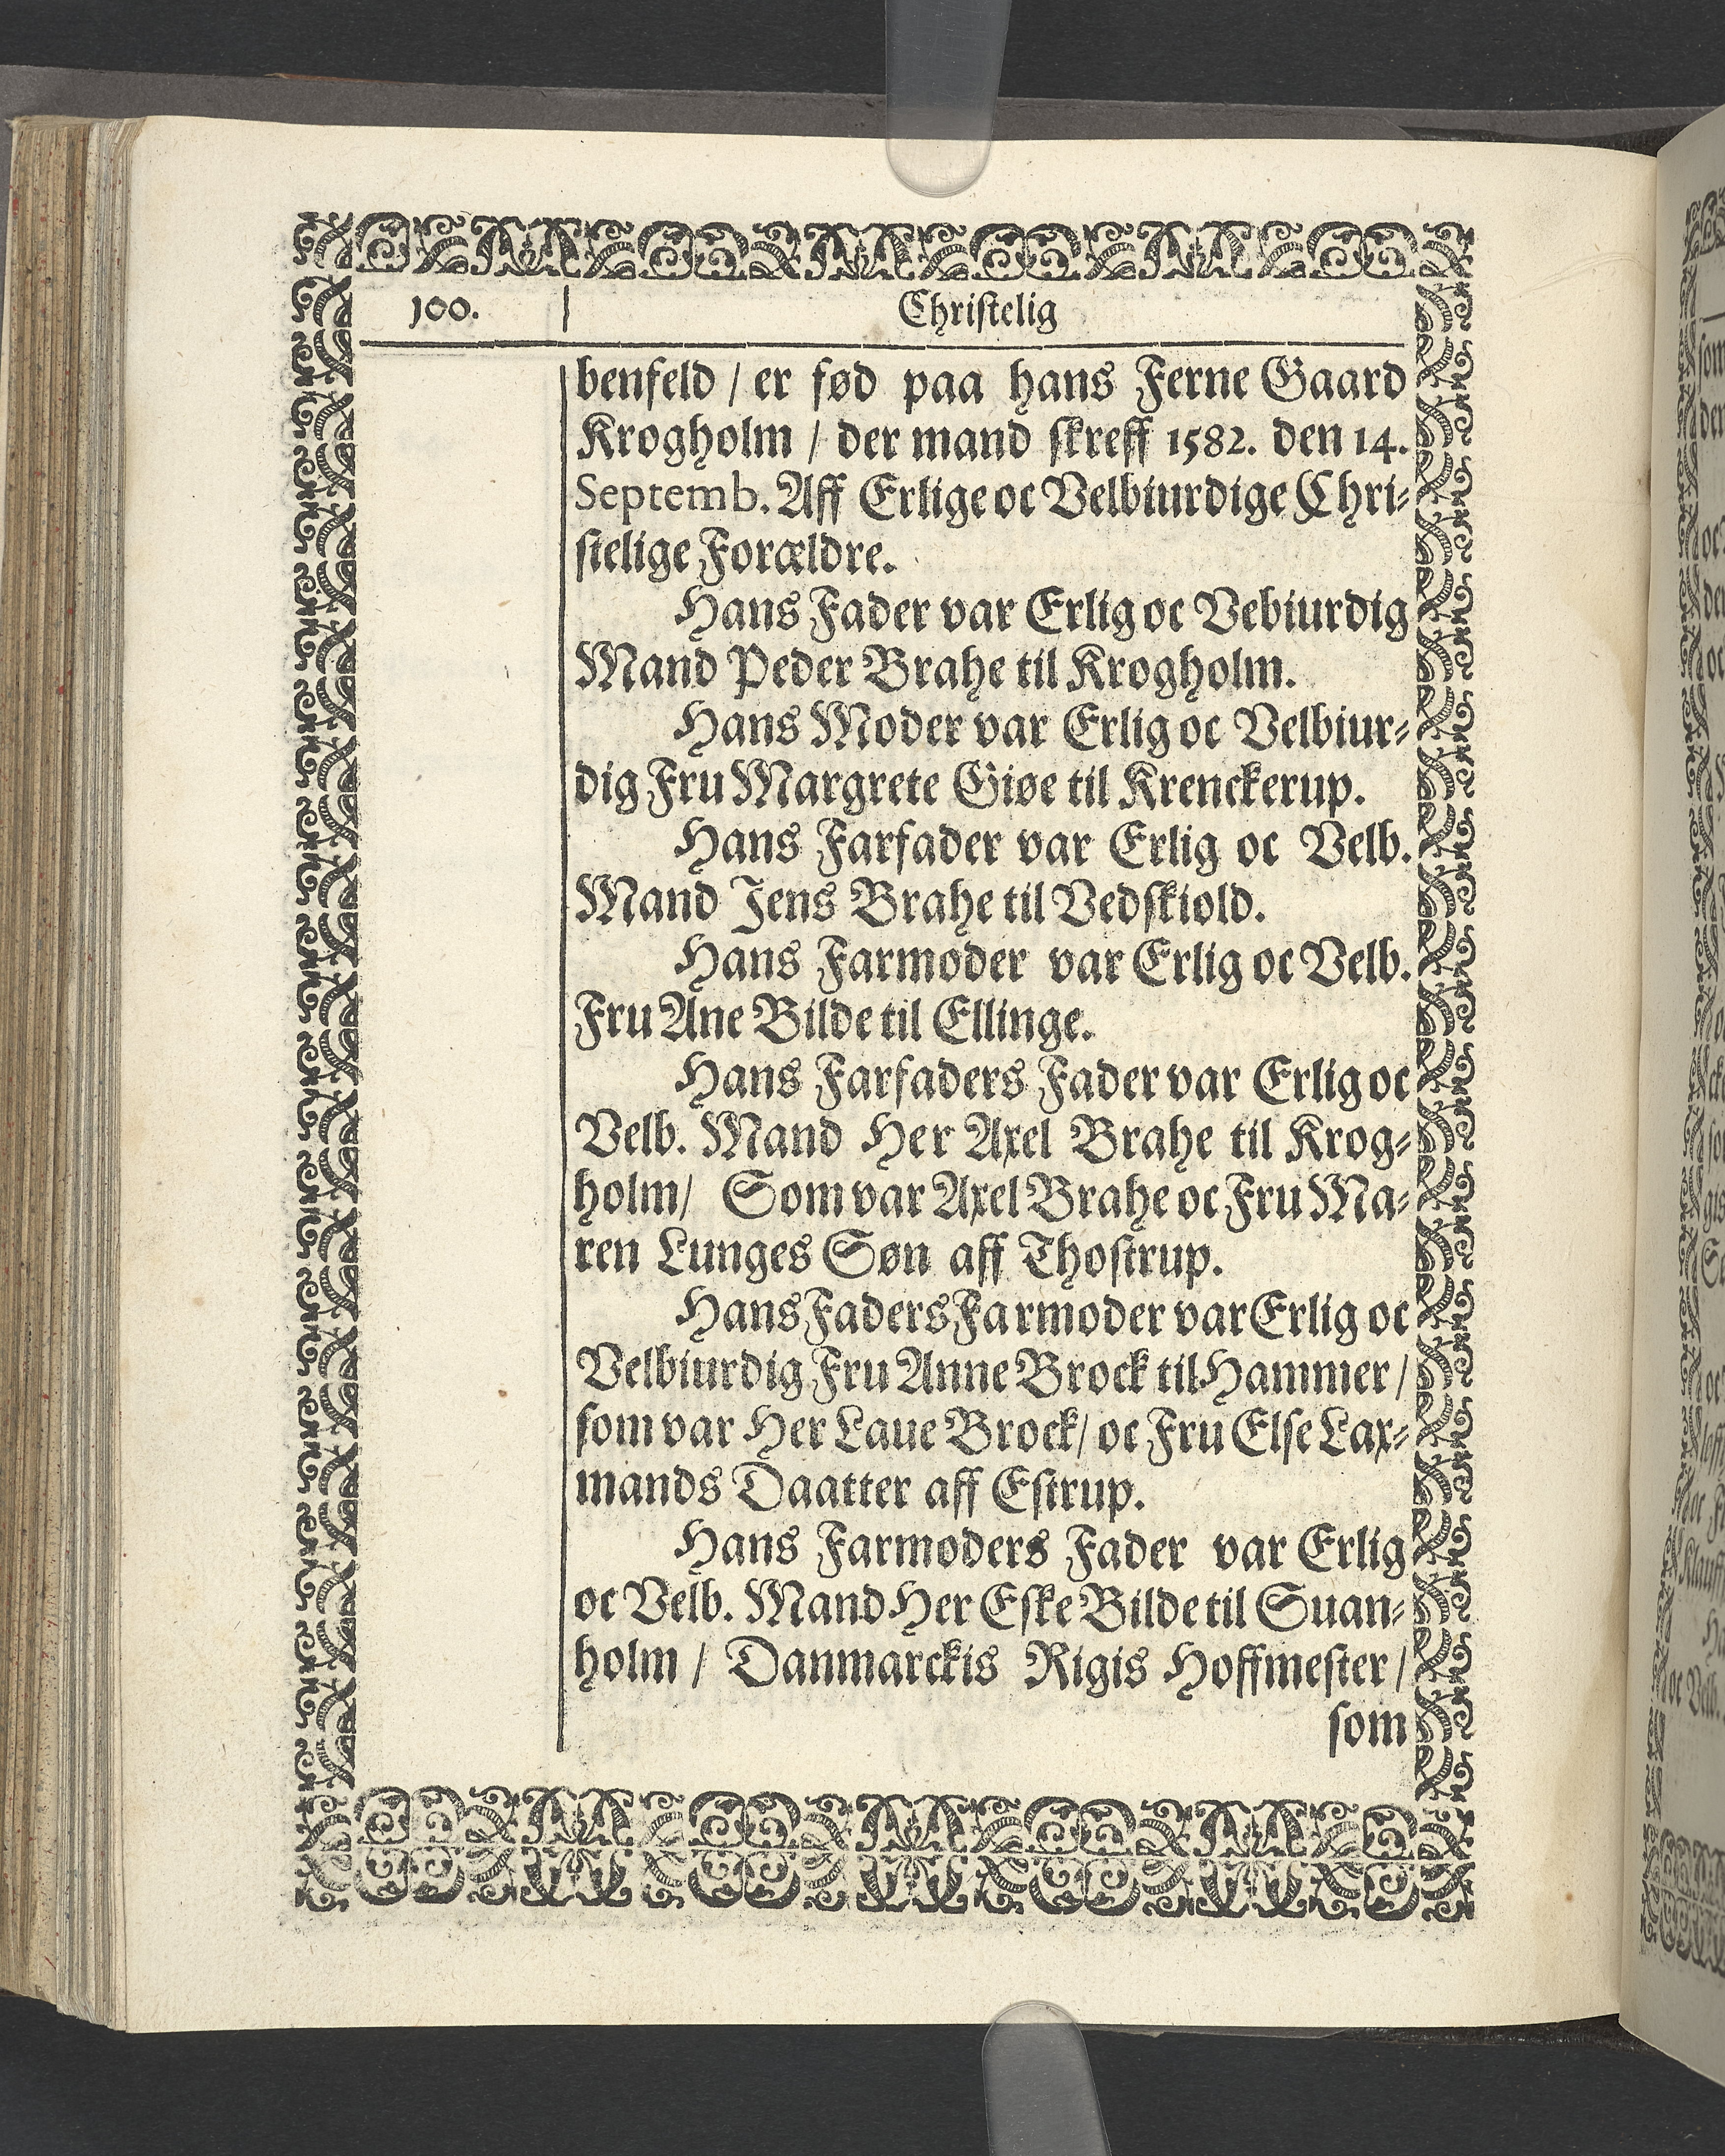 100. Christelig
benfeld / er fød paa hans Ferne Gaard
Krogholm / der mand skreff 1582. den 14.
Septemb. Aff Erlige oc Velbiurdige Chri-
stelige Forældre.
Hans Fader var Erlig oc Vebiurdig
Mand Peder Brahe til Krogholm.
Hans Moder var Erlig oc Velbiur-
dig Fru Margrete Giøe til Krenckerup.
Hans Farfader var Erlig oc Velb.
Mand Jens Brahe til Vedskiold.
Hans Farmoder var Erlig oc Velb.
Fru Ane Bilde til Ellinge.
Hans Farfaders Fader var Erlig oc
Velb. Mand Her Axel Brahe til Krog-
holm / Som var Axel Brahe oc Fru Ma-
ren Lunges Søn aff Thostrup.
Hans Faders Farmoder var Erlig oc
Velbiurdig Fru Anne Brock til Hammer /
som var Her Laue Brock / oc Fru Else Lax-
mands Daatter aff Estrup.
Hans Farmoders Fader var Erlig
oc Velb. Mand Her Eske Bilde til Suan-
holm / Danmarckis Rigis Hoffmester /
som